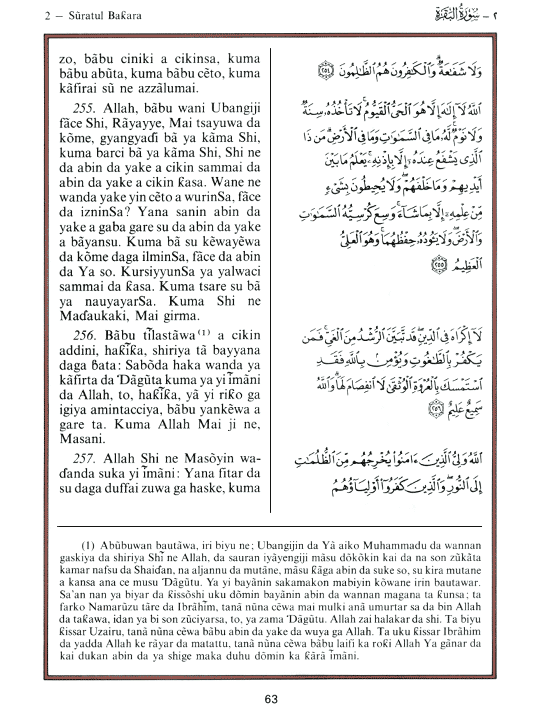 2 — Sūratul Baƙara
سُورَةُ البَقَرَةِ — ٢
zo, bābu ciniki a cikinsa, kuma
bābu abūta, kuma bābu cēto, kuma
kāfirai sū ne azzālumai.
255. Allah, bābu wani Ubangiji
fāce Shi, Rāyayye, Mai tsayuwa da
kōme, gyangyaɗi bā ya kāma Shi,
kuma barci bā ya kāma Shi, Shi ne
da abin da yake a cikin sammai da
abin da yake a cikin ƙasa. Wane ne
wanda yake yin cēto a wurinSa, fāce
da izninSa? Yana sanin abin da
yake a gaba gare su da abin da yake
a bāyansu. Kuma bā su kēwayēwa
da kōme daga ilminSa, fāce da abin
da Ya so. KursiyyunSa ya yalwaci
sammai da ƙasa. Kuma tsare su bā
ya nauyayarSa. Kuma Shi ne
Maɗaukaki, Mai girma.
256. Bābu tīlastāwa(1) a cikin
addini, haƙīƙa, shiriya tā bayyana
daga ɓata: Sabōda haka wanda ya
kāfirta da Ɗāgūta kuma ya yi īmāni
da Allah, to, haƙīƙa, yā yi riƙo ga
igiya amintacciya, bābu yankēwa a
gare ta. Kuma Allah Mai ji ne,
Masani.
257. Allah Shi ne Masōyin wa-
ɗanda suka yi īmāni: Yana fitar da
su daga duffai zuwa ga haske, kuma
وَلَا شَفَٰعَةٌ وَٱلْكَٰفِرُونَ هُمُ ٱلظَّٰلِمُونَ ٢٥٤
ٱللَّهُ لَآ إِلَٰهَ إِلَّا هُوَ ٱلْحَىُّ ٱلْقَيُّومُ لَا تَأْخُذُهُۥ سِنَةٌ
وَلَا نَوْمٌ لَّهُۥ مَا فِى ٱلسَّمَٰوَٰتِ وَمَا فِى ٱلْأَرْضِ مَن ذَا
ٱلَّذِى يَشْفَعُ عِندَهُۥٓ إِلَّا بِإِذْنِهِۦ يَعْلَمُ مَا بَيْنَ
أَيْدِيهِمْ وَمَا خَلْفَهُمْ وَلَا يُحِيطُونَ بِشَىْءٍ
مِّنْ عِلْمِهِۦٓ إِلَّا بِمَا شَآءَ وَسِعَ كُرْسِيُّهُ ٱلسَّمَٰوَٰتِ
وَٱلْأَرْضَ وَلَا يَـُٔودُهُۥ حِفْظُهُمَا وَهُوَ ٱلْعَلِىُّ
ٱلْعَظِيمُ ٢٥٥
لَآ إِكْرَاهَ فِى ٱلدِّينِ قَد تَّبَيَّنَ ٱلرُّشْدُ مِنَ ٱلْغَىِّ فَمَن
يَكْفُرْ بِٱلطَّٰغُوتِ وَيُؤْمِنۢ بِٱللَّهِ فَقَدِ
ٱسْتَمْسَكَ بِٱلْعُرْوَةِ ٱلْوُثْقَىٰ لَا ٱنفِصَامَ لَهَا وَٱللَّهُ
سَمِيعٌ عَلِيمٌ ٢٥٦
ٱللَّهُ وَلِىُّ ٱلَّذِينَ ءَامَنُوا۟ يُخْرِجُهُم مِّنَ ٱلظُّلُمَٰتِ
إِلَى ٱلنُّورِ وَٱلَّذِينَ كَفَرُوٓا۟ أَوْلِيَآؤُهُمُ
(1) Abūbuwan bautāwa, iri biyu ne; Ubangijin da Yā aiko Muhammadu da wannan
gaskiya da shiriya Shī ne Allah, da sauran iyāyengiji māsu dōkōkin kai da na son zūkāta
kamar nafsu da Shaiɗan, na aljannu da mutāne, māsu ƙāga abin da suke so, su kira mutane
a kansa ana ce musu Ɗāgūtu. Ya yi bayānin sakamakon mabiyin kōwane irin bautawar.
Sa'an nan ya biyar da ƙissōshi uku dōmin bayānin abin da wannan magana ta ƙunsa; ta
farko Namarūzu tāre da Ibrāhīm, tanā nūna cēwa mai mulki anā umurtar sa da bin Allah
da taƙawa, idan ya bi son zūciyarsa, to, ya zama Ɗāgūtu. Allah zai halakar da shi. Ta biyu
ƙissar Uzairu, tanā nūna cēwa bābu abin da yake da wuya ga Allah. Ta uku ƙissar Ibrāhim
da yadda Allah ke rāyar da matattu, tanā nūna cēwa bābu laifi ka roƙi Allah Ya gānar da
kai dukan abin da ya shige maka duhu dōmin ka ƙārā īmāni.
63